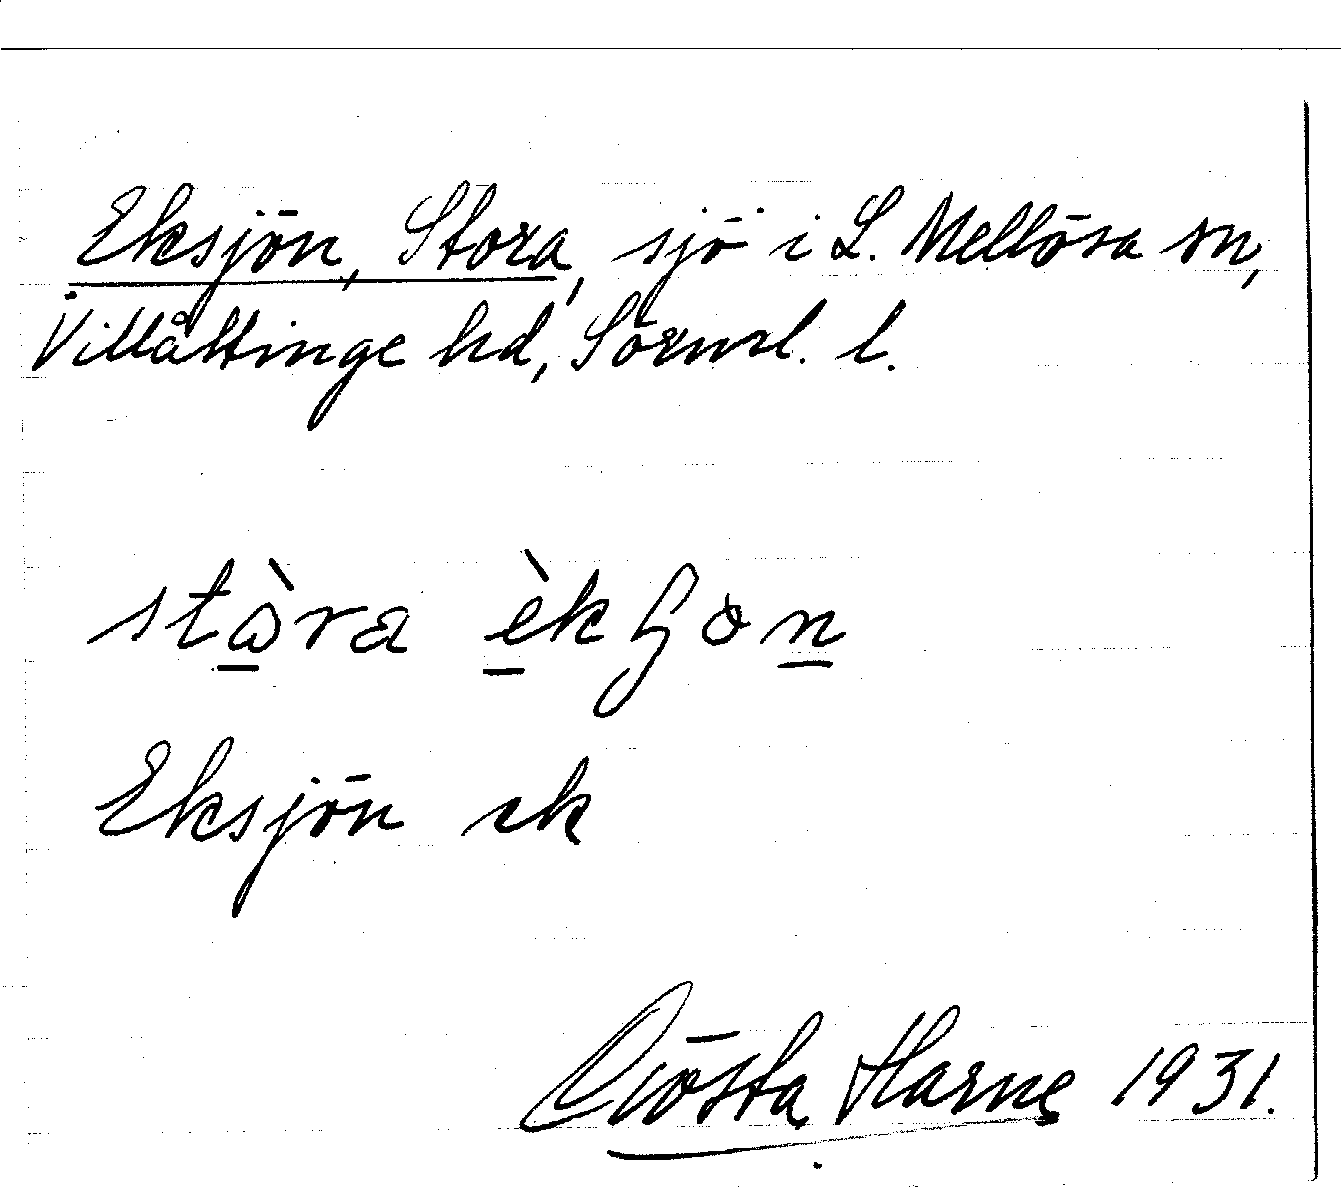 Eksjön, Stora, sjö i L. Mellösa sn,
Villåttinge hd, Sörml. l.
stɷ̀ra
Eksjön ek
Gösta Harne 1931.